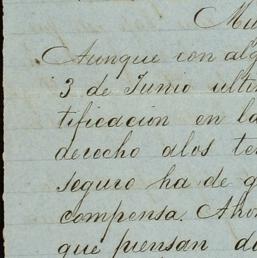 Mu
Aunque con alg
3 de Junio ulti
tificacion en la
derecho alos te
seguro ha de q
compensa. Aho
que piensan da